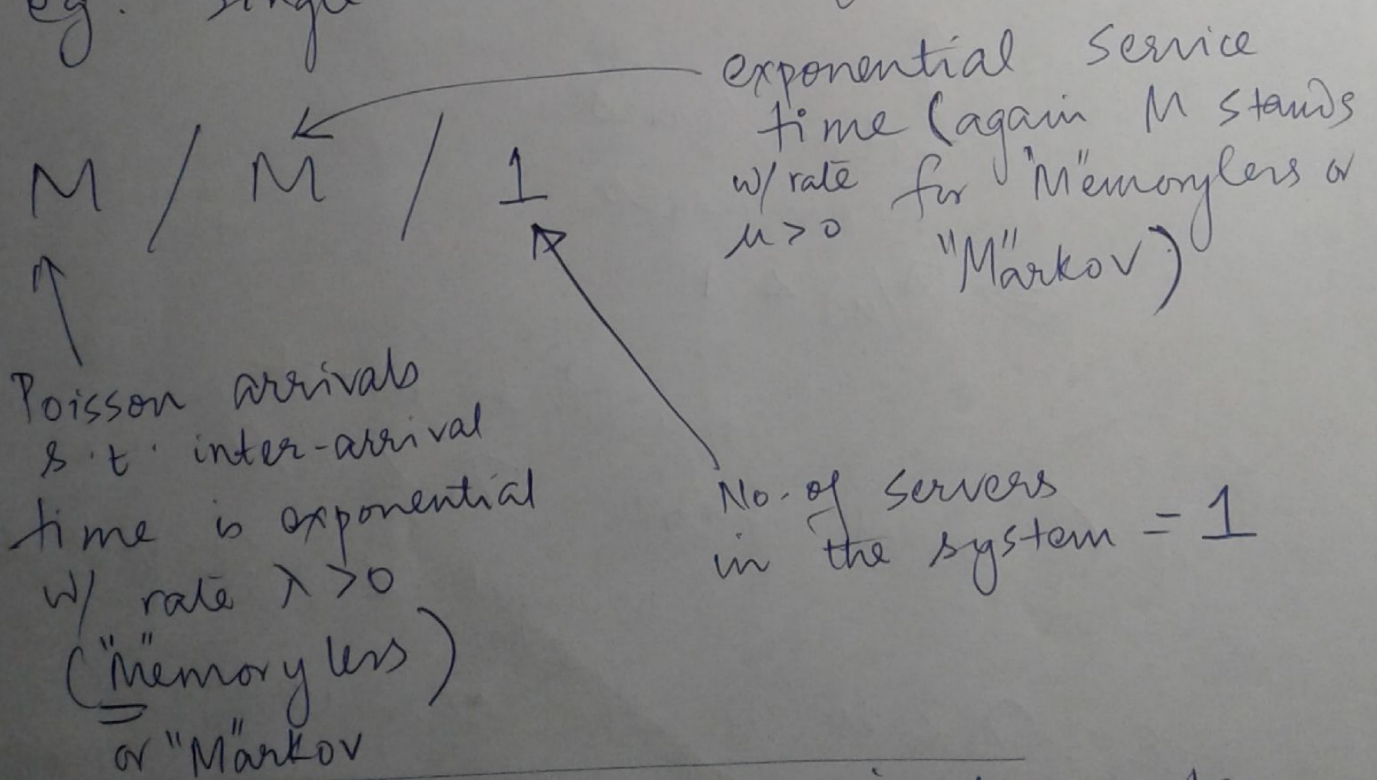 eg. single
exponential service
time (again M stands
w/ rate for "M"emoryless or
μ > 0 "M"arkov)
M / M / 1
Poisson arrivals
s.t. inter-arrival
time is exponential
w/ rate λ > 0
("M"emoryless)
or "M"arkov
No. of servers
in the system = 1